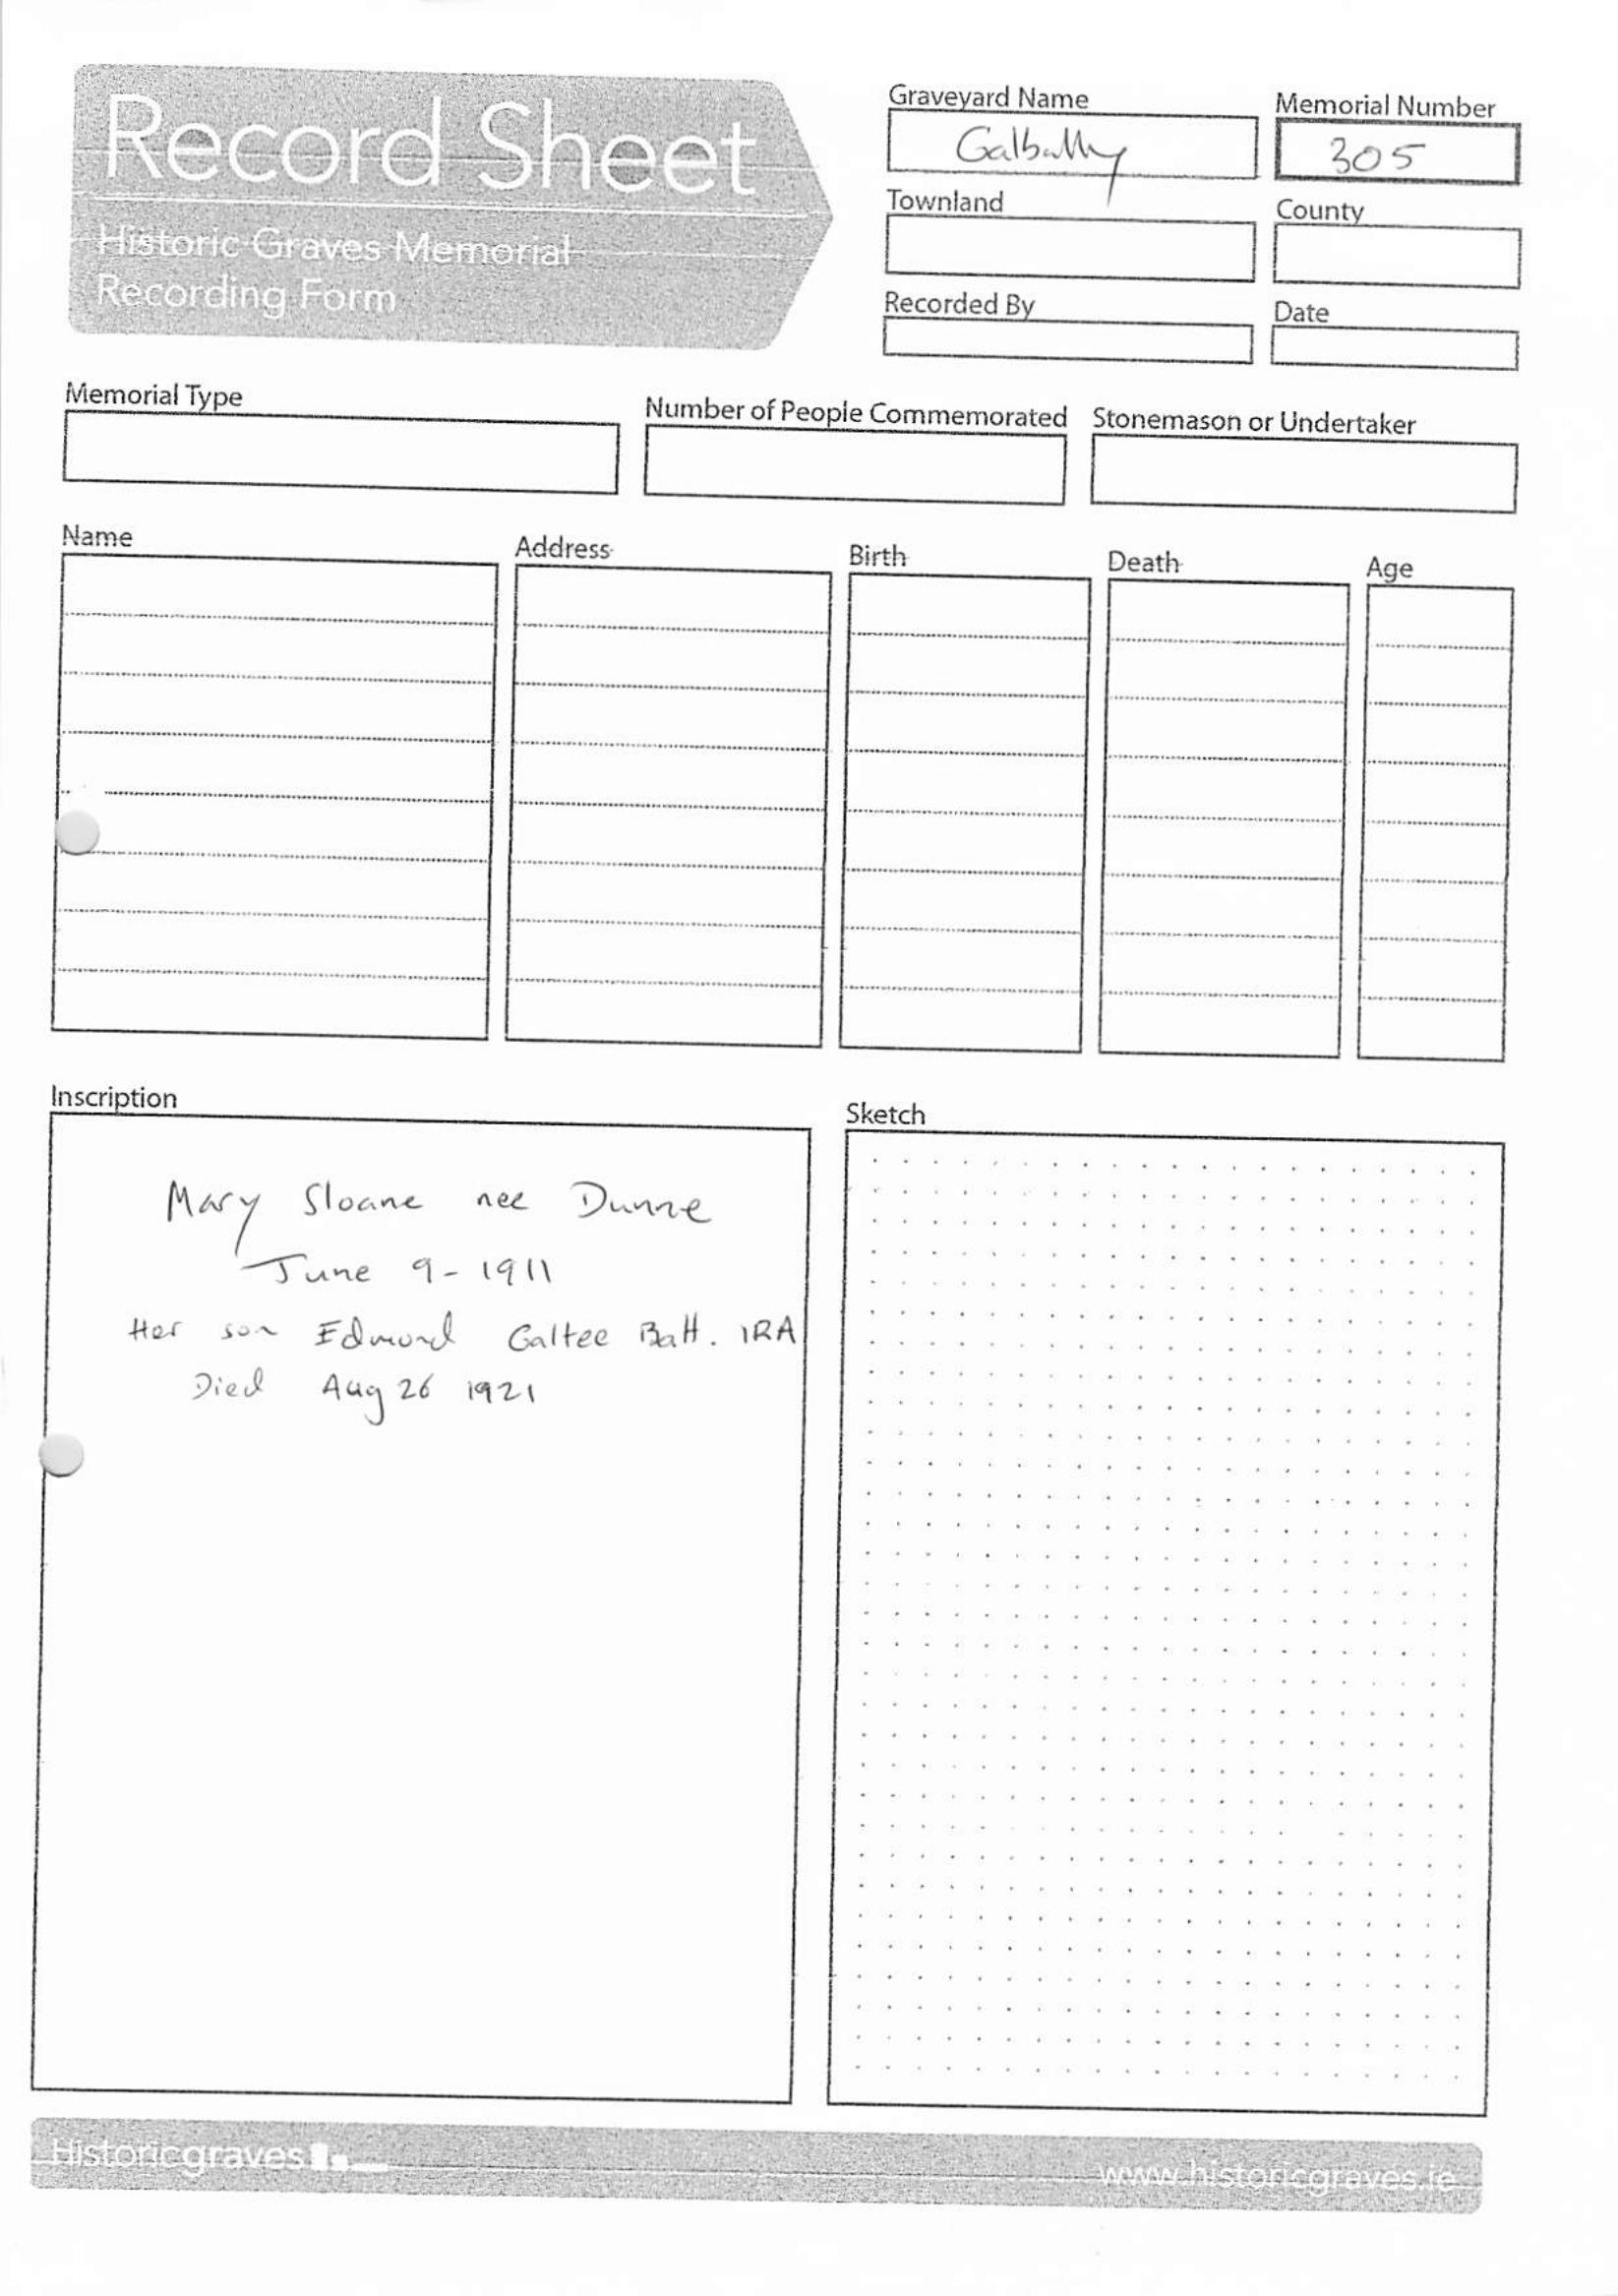 Record Sheet
Historic Graves Memorial
Recording Form
Graveyard Name
Galbally
Memorial Number
305
Townland
County
Recorded By
Date
Memorial Type
Number of People Commemorated
Stonemason or Undertaker
Name
Address
Birth
Death
Age
Inscription
Mary Sloane nee Dunne
June 9 - 1911
Her son Edmond Galtee Batt. IRA
Died Aug 26 1921
Sketch
Historicgraves
www.historicgraves.ie